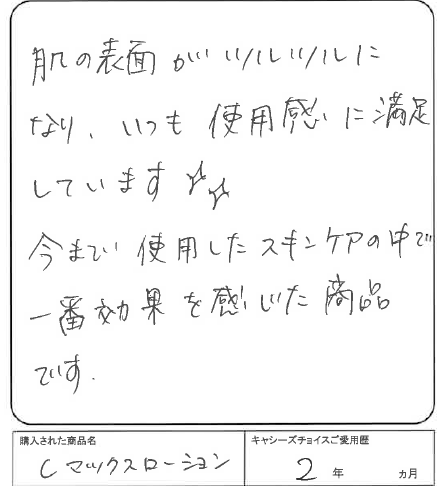 肌の表面がツルツルに
なり、いつも使用感に満足
しています✨
今まで使用したスキンケアの中で
一番効果を感じた商品
です.
購入された商品名
Cマックスローション
キャシーズチョイスご愛用歴
2年 ヵ月